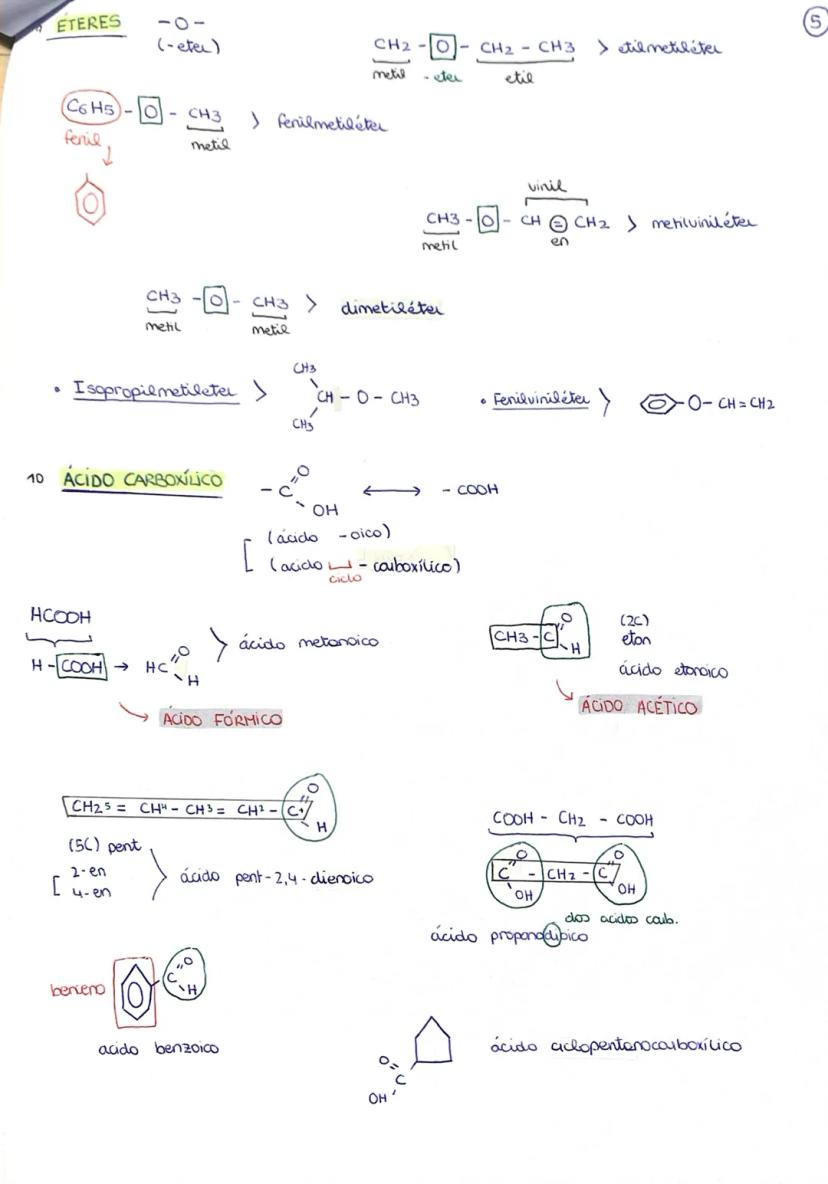 ÉTERES -O-
(-eter)
5
CH2 - O - CH2 - CH3 > etilmetiléter
metil - eter etil
C6H5 - O - CH3 > fenilmetiléter
fenil metil
vinil
CH3 - O - CH = CH2 > metilviniléter
metil en
CH3 - O - CH3 > dimetiléter
metil metil
• Isopropilmetileter > CH3 CH - O - CH3 CH3
• Fenilviniléter > O- CH=CH2
10 ÁCIDO CARBOXÍLICO - C O OH ↔ - COOH
(ácido -oico)
(acido - carboxílico)
ciclo
HCOOH
H - COOH → HC O H > ácido metanoico
ÁCIDO FÓRMICO
CH3 - C O H (2C)
etan
ácido etanoico
ÁCIDO ACÉTICO
CH2 5 = CH4 - CH3 = CH2 - C1 O H
(5C) pent
2-en
4-en
ácido pent-2,4-dienoico
COOH - CH2 - COOH
C O OH - CH2 - C O OH
dos acidos carb.
ácido propanodioico
benceno C O H
acido benzoico
O C OH ácido ciclopentanocarboxílico